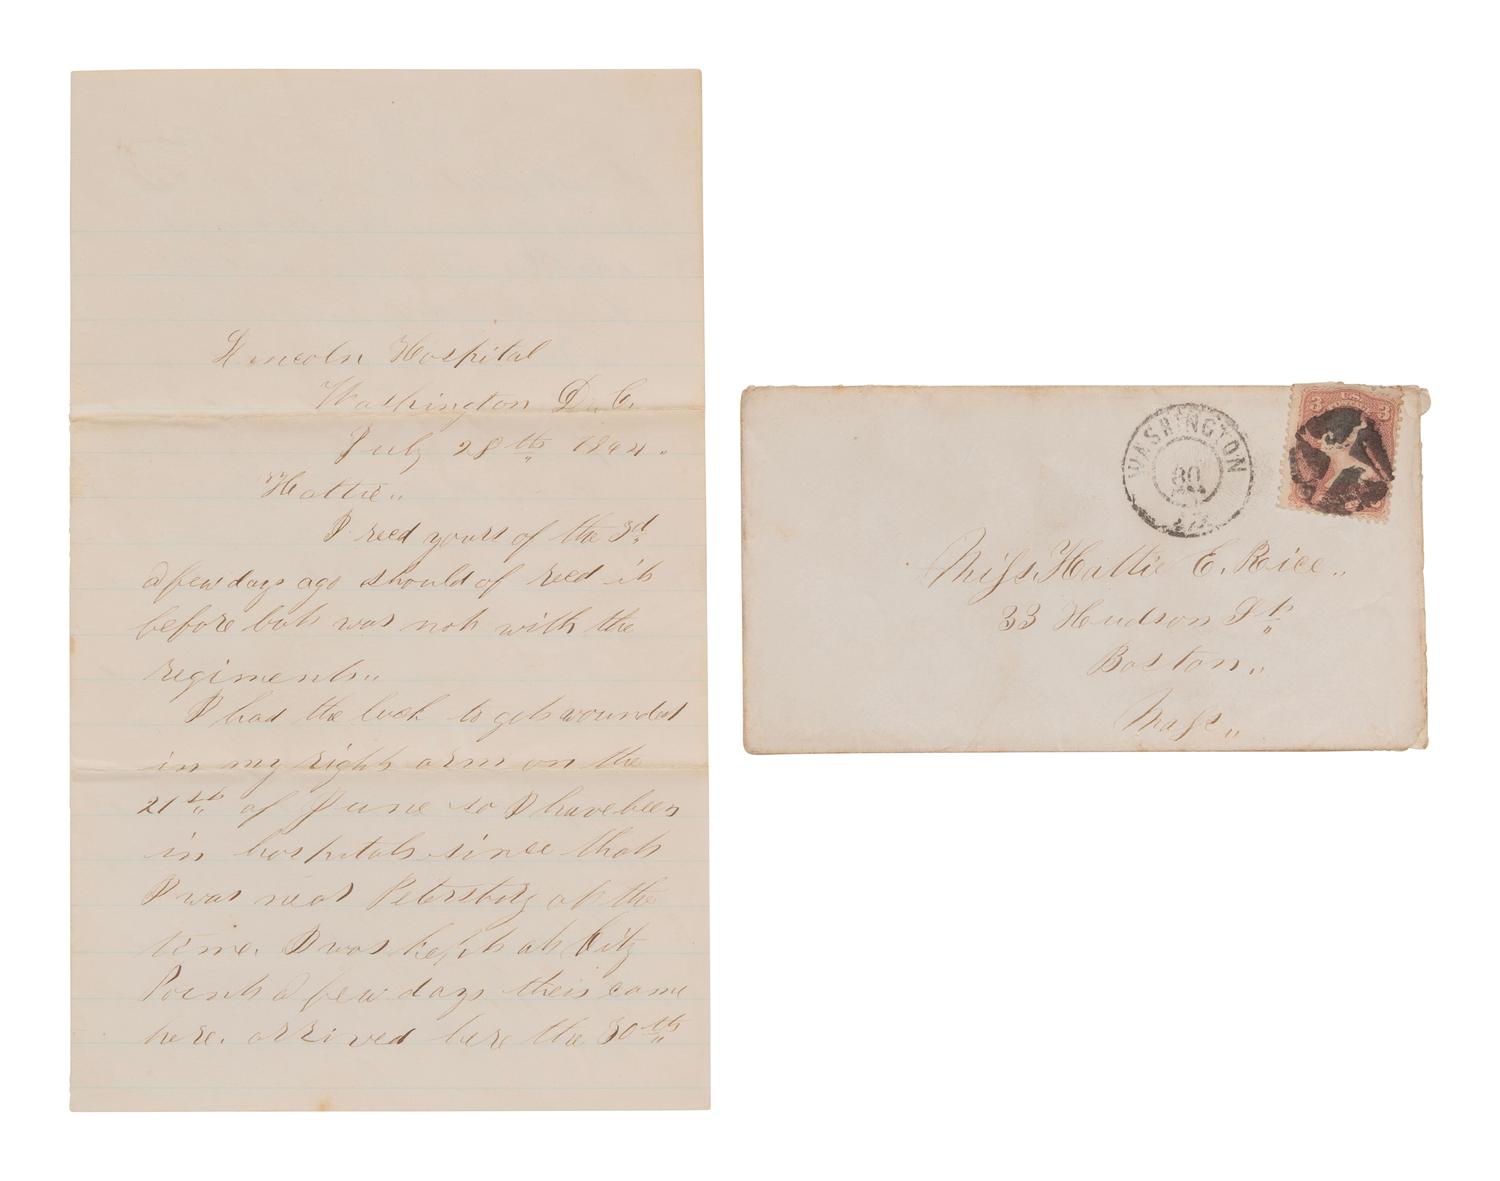 Lincoln Hospital
Washington D.C.
July 28th 1864.
Hattie,,
I recd yours of the 3d
a few days ago should of recd it
before but was not with the
regiment,,
I had the luck to get wounded
in my right arm on the
21st of June so I have been
in hospitals since that
I was near Petersburg at the
time. I was kept at City
Point a few days then came
here. arrived here the 30th
WASHINGTON
30
3 3
Miss Hattie E. Rice,,
33 Hudson St
Boston,,
Mass,,